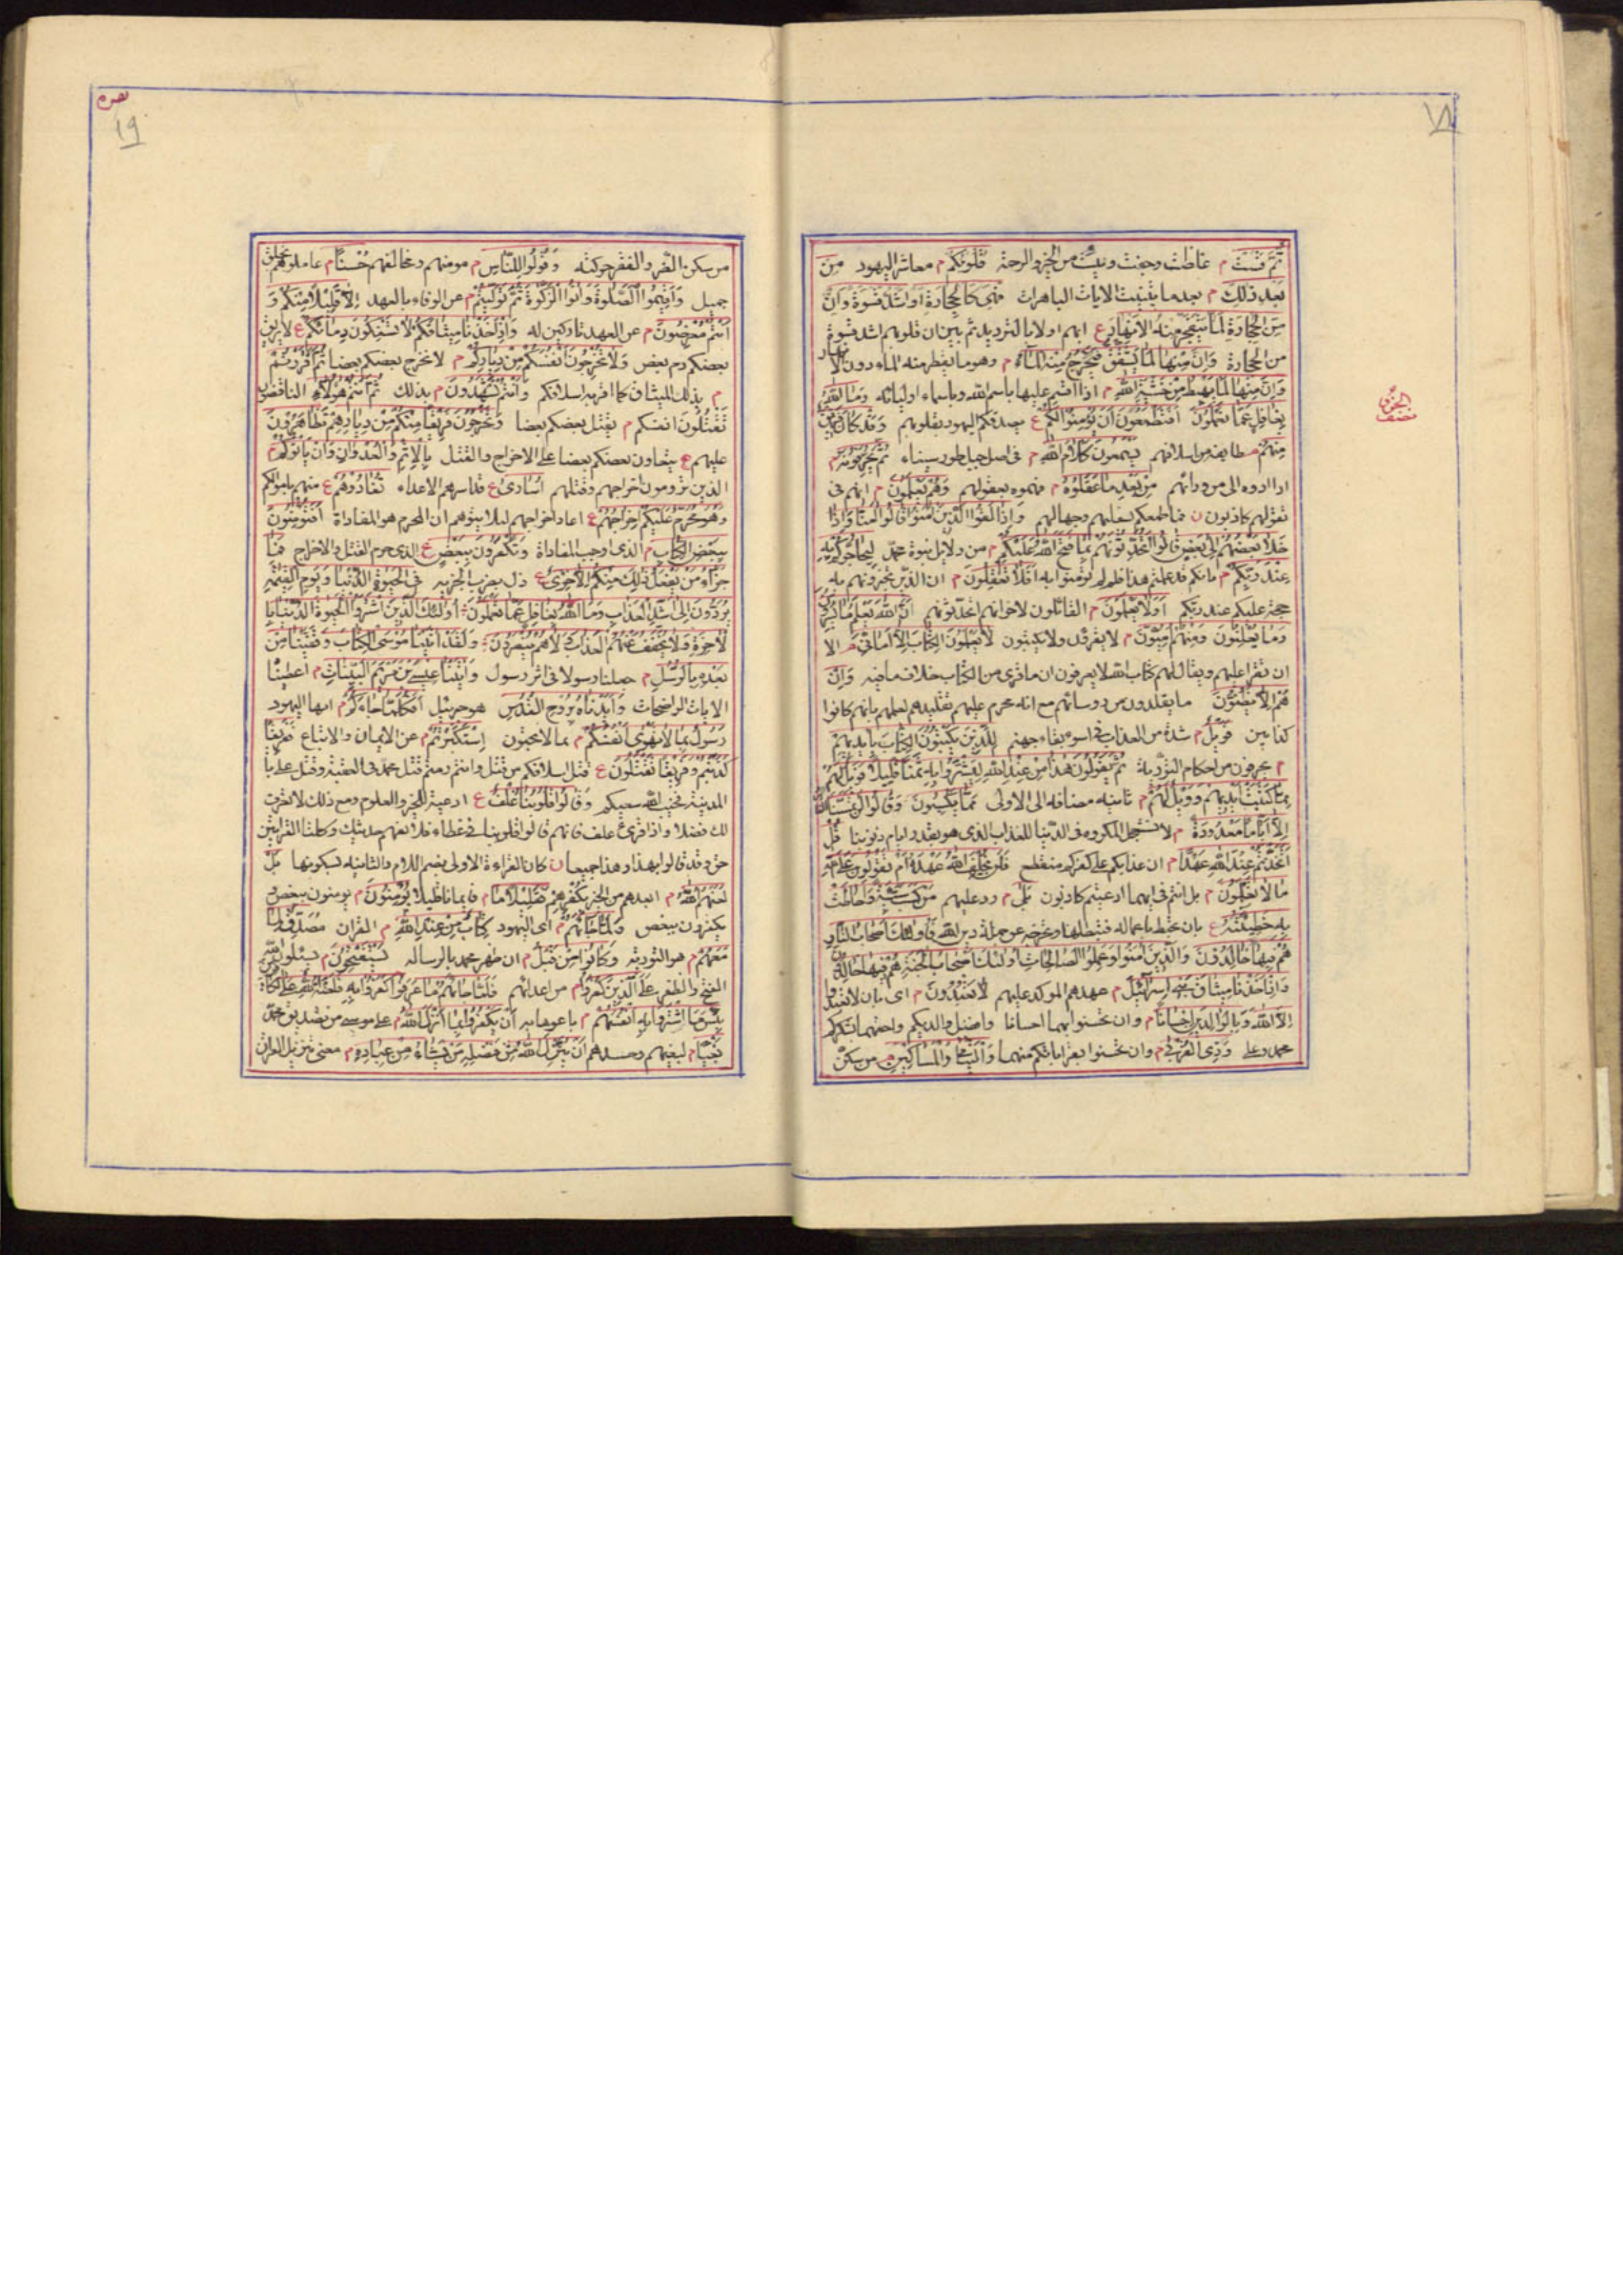 ثُمَّ قَسَتْ م غلظت وجفت ويبست من الخير والرحمة قُلُوبُكُمْ م معاشر اليهود مِنْ
بَعْدِ ذٰلِكَ م بعد ما تبينت الايات الباهرات فَهِيَ كَالْحِجَارَةِ اَوْ اَشَدُّ قَسْوَةً وَاِنَّ
مِنَ الْحِجَارَةِ لَمَا يَتَفَجَّرُ مِنْهُ الْاَنْهَارُ ع ابهم اولا بالترديد ثم بين ان قلوبهم اشد قسوة
من الحجارة وَاِنَّ مِنْهَا لَمَا يَشَّقَّقُ فَيَخْرُجُ مِنْهُ الْمَاءُ م وهو ما يقطر منه الماء دون الانهار
وَاِنَّ مِنْهَا لَمَا يَهْبِطُ مِنْ خَشْيَةِ اللهِ م اذا اقسم عليها باسم الله وباسماء اوليائه وَمَا اللهُ
بِغَافِلٍ عَمَّا تَعْمَلُونَ اَفَتَطْمَعُونَ اَنْ يُؤْمِنُوا لَكُمْ ع يصدقكم اليهود بقلوبهم وَقَدْ كَانَ فَرِيقٌ
مِنْهُمْ م طايفة من اسلافهم يَسْمَعُونَ كَلَامَ اللهِ م فى اصل جبل طور سيناء ثُمَّ يُحَرِّفُونَهُ م
اذا ادوه الى من ورائهم مِنْ بَعْدِ مَا عَقَلُوهُ م فهموه بعقولهم وَهُمْ يَعْلَمُونَ م انهم فى
تقولهم كاذبون ن فما طمعكم بسفلهم وجهالهم وَاِذَا لَقُوا الَّذِينَ اٰمَنُوا قَالُوا اٰمَنَّا وَاِذَا
خَلَا بَعْضُهُمْ اِلٰى بَعْضٍ قَالُوا اَتُحَدِّثُونَهُمْ بِمَا فَتَحَ اللهُ عَلَيْكُمْ م من دلايل نبوة محمد لِيُحَاجُّوكُمْ بِهِ
عِنْدَ رَبِّكُمْ م بانكم قد علمتم هذا فلم لم تؤمنوا به اَفَلَا تَعْقِلُونَ م ان الذى تخبرونهم به
حجة عليكم عند ربكم اَوَلَا يَعْلَمُونَ م القائلون لاخوانهم اتحدثونهم اَنَّ اللهَ يَعْلَمُ مَا يُسِرُّونَ
وَمَا يُعْلِنُونَ وَمِنْهُمْ اُمِّيُّونَ م لا يقرؤن ولا يكتبون لَا يَعْلَمُونَ الْكِتَابَ اِلَّا اَمَانِيَّ م الا
ان تقرا عليهم ويقال لهم كتاب الله لا يعرفون ان ما قرئ من الكتاب خلاف ما فيه وَاِنْ
هُمْ اِلَّا يَظُنُّونَ ما يقلدون من رؤسائهم مع انه محرم عليهم تقليدهم لعلمهم بانهم كانوا
كذابين فَوَيْلٌ م شدة من العذاب فى اسوء بقاء جهنم لِلَّذِينَ يَكْتُبُونَ الْكِتَابَ بِاَيْدِيهِمْ
م يحرفون من احكام التورية ثُمَّ يَقُولُونَ هٰذَا مِنْ عِنْدِ اللهِ لِيَشْتَرُوا بِهِ ثَمَنًا قَلِيلًا فَوَيْلٌ لَهُمْ
مِمَّا كَتَبَتْ اَيْدِيهِمْ وَوَيْلٌ لَهُمْ م ثانية مضافة الى الاولى مِمَّا يَكْسِبُونَ وَقَالُوا لَنْ تَمَسَّنَا النَّارُ
اِلَّا اَيَّامًا مَعْدُودَةً م لا نستعجل المكروه فى الدنيا للعذاب الذى هو بقدر ايام ذنوبنا قُلْ
اَتَّخَذْتُمْ عِنْدَ اللهِ عَهْدًا م ان عذابكم على كفركم منقطع فَلَنْ يُخْلِفَ اللهُ عَهْدَهُ اَمْ تَقُولُونَ عَلَى اللهِ
مَا لَا تَعْلَمُونَ م بل انتم فى ايهما ادعيتم كاذبون بَلٰى م رد عليهم مَنْ كَسَبَ سَيِّئَةً وَاَحَاطَتْ
بِهِ خَطِيئَتُهُ ع بان تحيط باعماله فتبطلها وتخرجه عن جملة دين الله فَاُولٰئِكَ اَصْحَابُ النَّارِ
هُمْ فِيهَا خَالِدُونَ وَالَّذِينَ اٰمَنُوا وَعَمِلُوا الصَّالِحَاتِ اُولٰئِكَ اَصْحَابُ الْجَنَّةِ هُمْ فِيهَا خَالِدُونَ
وَاِذْ اَخَذْنَا مِيثَاقَ بَنِي اِسْرَائِيلَ م عهدهم المؤكد عليهم لَا تَعْبُدُونَ م اى بان لا تعبدوا
اِلَّا اللهَ وَبِالْوَالِدَيْنِ اِحْسَانًا م وان تحسنوا بهما احسانا وافضل والديكم واحقهما بشكركم
محمد وعلى وَذِي الْقُرْبٰى م وان تحسنوا بقراباتكم منهما وَالْيَتَامٰى وَالْمَسَاكِينِ م من سكن
الجزء
نصف
بقره
١٩
من سكن الضر والفقر حركته وَقُولُوا لِلنَّاسِ م مؤمنهم ومخالفهم حُسْنًا م عاملوهم بخلق
جميل وَاَقِيمُوا الصَّلٰوةَ وَاٰتُوا الزَّكٰوةَ ثُمَّ تَوَلَّيْتُمْ م عن الوفاء بالعهد اِلَّا قَلِيلًا مِنْكُمْ وَ
اَنْتُمْ مُعْرِضُونَ م عن العهد تاركين له وَاِذْ اَخَذْنَا مِيثَاقَكُمْ لَا تَسْفِكُونَ دِمَاءَكُمْ ع لا يريق
بعضكم دم بعض وَلَا تُخْرِجُونَ اَنْفُسَكُمْ مِنْ دِيَارِكُمْ م لا تخرج بعضكم بعضا ثُمَّ اَقْرَرْتُمْ
م بذلك الميثاق كما اقر به اسلافكم وَاَنْتُمْ تَشْهَدُونَ م بذلك ثُمَّ اَنْتُمْ هٰؤُلَاءِ الناقضون
تَقْتُلُونَ انفسكم م يقتل بعضكم بعضا وَتُخْرِجُونَ فَرِيقًا مِنْكُمْ مِنْ دِيَارِهِمْ تَظَاهَرُونَ
عليهم ع يتعاون بعضكم بعضا على الاخراج والقتل بِالْاِثْمِ وَالْعُدْوَانِ وَاِنْ يَاْتُوكُمْ م
الذين ترومون اخراجهم وقتلهم اُسَارٰى ع قد اسرهم الاعداء تُفَادُوهُمْ ع منهم باموالكم
وَهُوَ مُحَرَّمٌ عَلَيْكُمْ اِخْرَاجُهُمْ ع اعاد اخراجهم لئلا يتوهم ان المحرم هو المفاداة اَفَتُؤْمِنُونَ
بِبَعْضِ الْكِتَابِ م الذى اوجب المفاداة وَتَكْفُرُونَ بِبَعْضٍ ع الذى حرم القتل والاخراج فَمَا
جَزَاءُ مَنْ يَفْعَلُ ذٰلِكَ مِنْكُمْ اِلَّا خِزْيٌ ع ذل بضرب الجزية فِي الْحَيٰوةِ الدُّنْيَا وَيَوْمَ الْقِيٰمَةِ
يُرَدُّونَ اِلٰى اَشَدِّ الْعَذَابِ وَمَا اللهُ بِغَافِلٍ عَمَّا تَعْمَلُونَ اُولٰئِكَ الَّذِينَ اشْتَرَوُا الْحَيٰوةَ الدُّنْيَا بِا
لْاٰخِرَةِ فَلَا يُخَفَّفُ عَنْهُمُ الْعَذَابُ وَلَا هُمْ يُنْصَرُونَ وَلَقَدْ اٰتَيْنَا مُوسَى الْكِتَابَ وَقَفَّيْنَا مِنْ
بَعْدِهِ بِالرُّسُلِ م جعلنا رسولا فى اثر رسول وَاٰتَيْنَا عِيسَى بْنَ مَرْيَمَ الْبَيِّنَاتِ م اعطينا
الايات الواضحات وَاَيَّدْنَاهُ بِرُوحِ الْقُدُسِ هو جبرئيل اَفَكُلَّمَا جَاءَكُمْ م ايها اليهود
رَسُولٌ بِمَا لَا تَهْوٰى اَنْفُسُكُمْ م بما لا تحبون اِسْتَكْبَرْتُمْ م عن الايمان والاتباع فَفَرِيقًا
كَذَّبْتُمْ وَفَرِيقًا تَقْتُلُونَ ع قتل اسلافكم من قتل وانتم رمتم قتل محمد فى العقبة وقتل على با
المدينة فخيب الله سعيكم وَقَالُوا قُلُوبُنَا غُلْفٌ ع اوعية للخير والعلوم ومع ذلك لا نعرف
لك فضلا واذا قرئ غلف فانهم قالوا قلوبنا فى غطاء فلا نفهم حديثك وكلتا القرائتين
حق وقد قالوا بهذا وهذا جميعا ن كان القراءة الاولى بضم اللام والثانيه بسكونها بَلْ
لَعَنَهُمُ اللهُ م ابعدهم من الخير بِكُفْرِهِمْ فَقَلِيلًا مَا م فايمانا قليلا يُؤْمِنُونَ م يؤمنون ببعض و
يكفرون ببعض وَلَمَّا جَاءَهُمْ م اى اليهود كِتَابٌ مِنْ عِنْدِ اللهِ م القران مُصَدِّقٌ لِمَا
مَعَهُمْ م هو التوريه وَكَانُوا مِنْ قَبْلُ م ان ظهر محمد بالرساله يَسْتَفْتِحُونَ م يسئلون الله
الفتح والظفر عَلَى الَّذِينَ كَفَرُوا م من اعدائهم فَلَمَّا جَاءَهُمْ مَا عَرَفُوا كَفَرُوا بِهِ فَلَعْنَةُ اللهِ عَلَى الْكَافِرِينَ
بِئْسَمَا اشْتَرَوْا بِهِ اَنْفُسَهُمْ م باعوها به اَنْ يَكْفُرُوا بِمَا اَنْزَلَ اللهُ م على موسى من تصديق محمد
بَغْيًا م لبغيهم وحسدهم اَنْ يُنَزِّلَ اللهُ مِنْ فَضْلِهِ عَلٰى مَنْ يَشَاءُ مِنْ عِبَادِهِ م معنى تنزيل القران